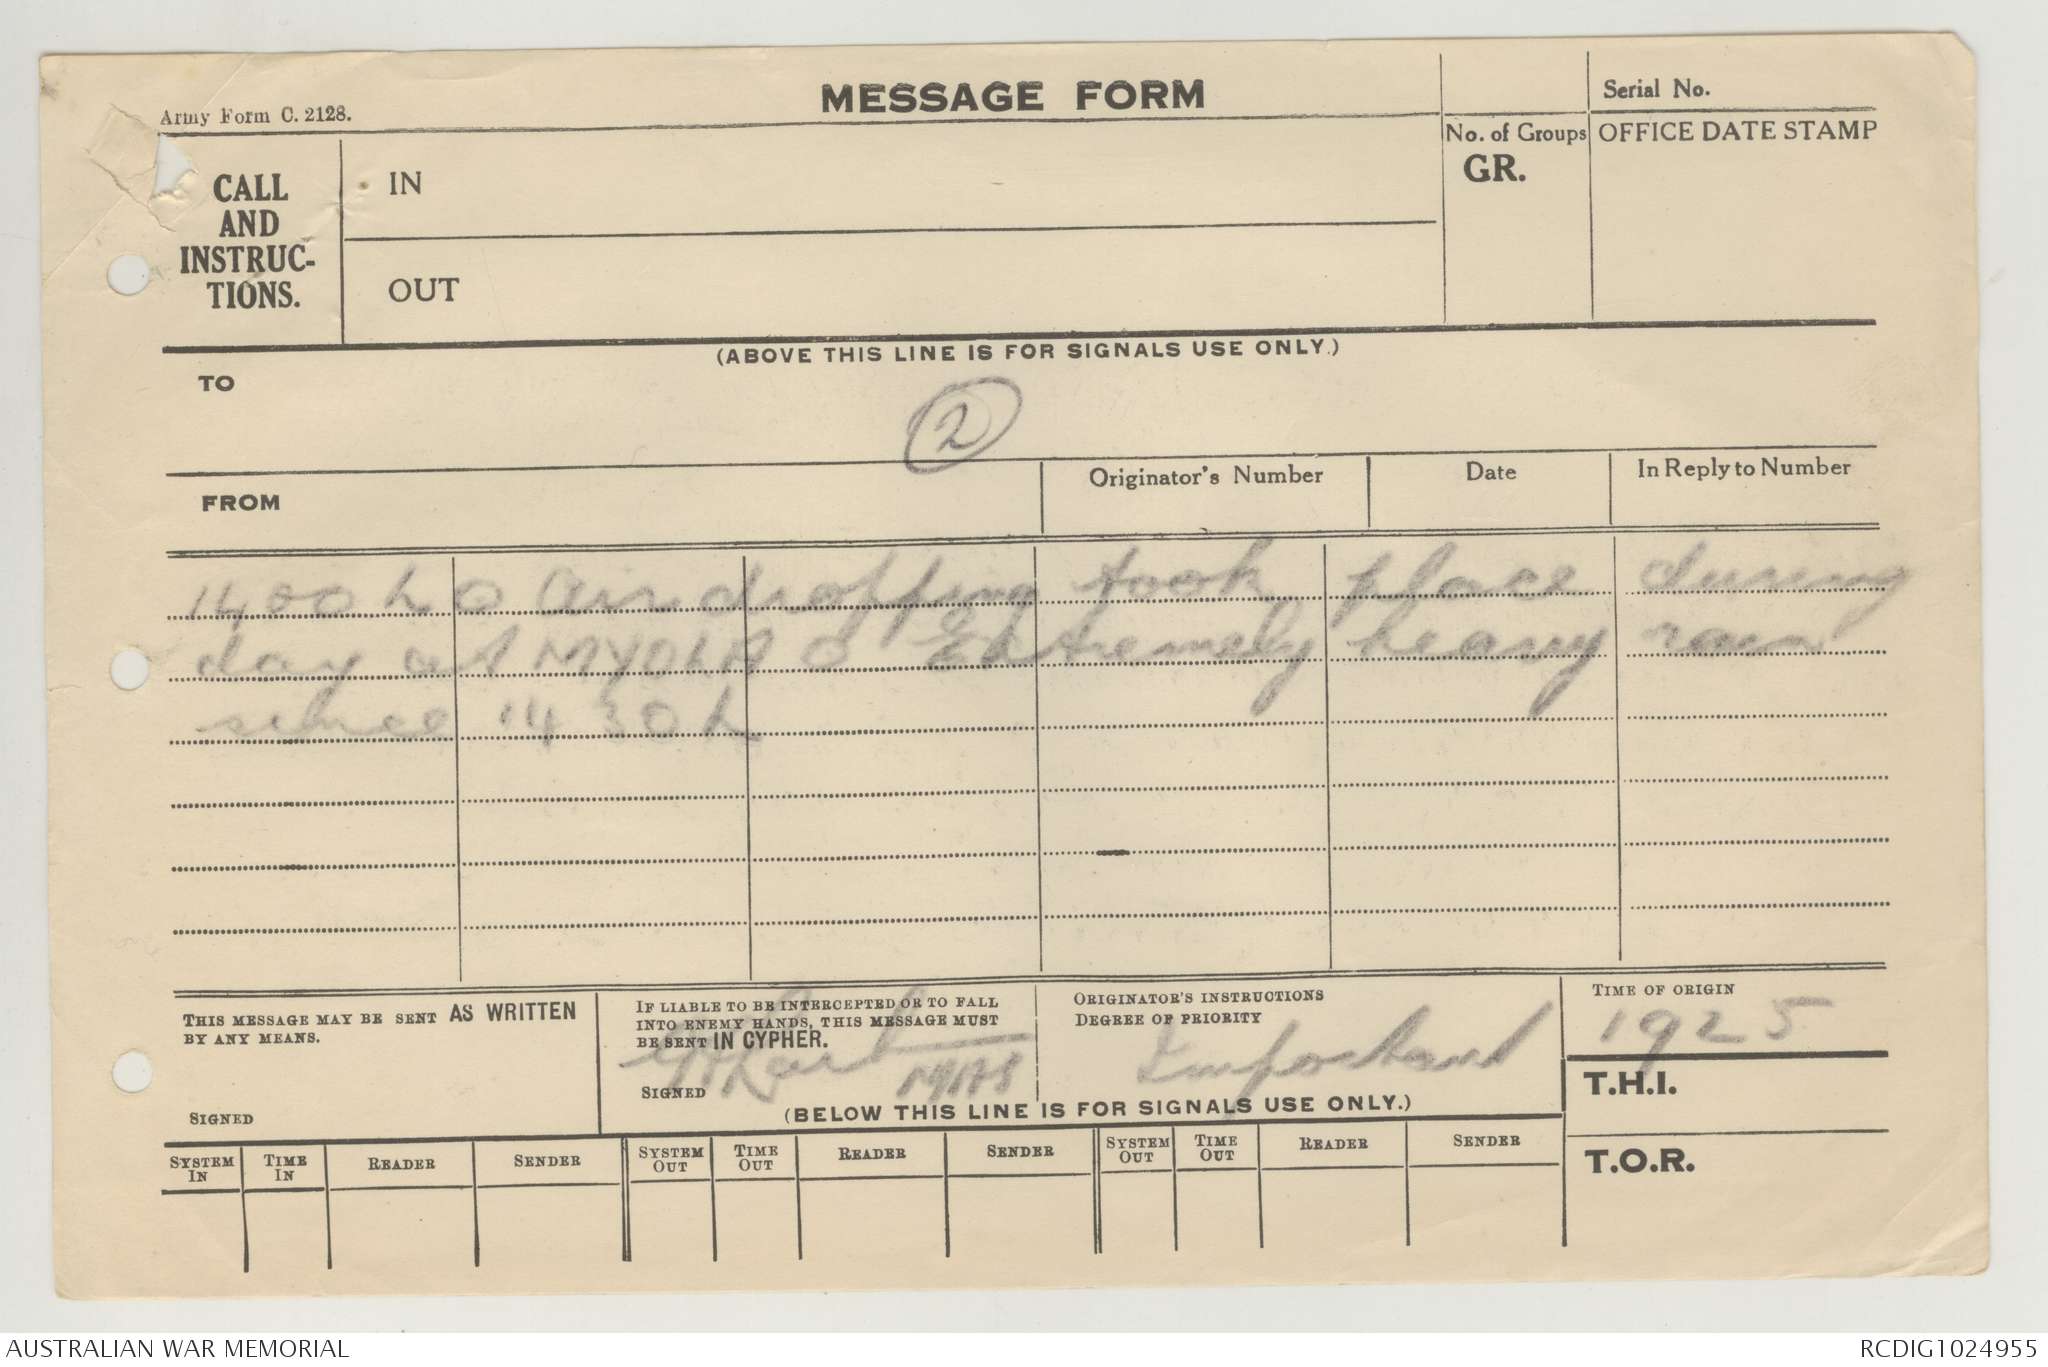 MESSAGE FORM
Army Form C. 2128.
Serial No.
CALL
AND
INSTRUC-
TIONS.
IN
OUT
No. of Groups
GR.
OFFICE DATE STAMP
(ABOVE THIS LINE IS FOR SIGNALS USE ONLY.)
TO
2
FROM
Originator's Number
Date
In Reply to Number
1400 h O air dropping took place during
day at MYOLA O Extremely heavy rain
since 1430 h
THIS MESSAGE MAY BE SENT AS WRITTEN
BY ANY MEANS.
SIGNED
IF LIABLE TO BE INTERCEPTED OR TO FALL
INTO ENEMY HANDS, THIS MESSAGE MUST
BE SENT IN CYPHER.
SIGNED
ORIGINATOR'S INSTRUCTIONS
DEGREE OF PRIORITY
Important
TIME OF ORIGIN
1925
T.H.I.
T.O.R.
(BELOW THIS LINE IS FOR SIGNALS USE ONLY.)
SYSTEM IN
TIME IN
READER
SENDER
SYSTEM OUT
TIME OUT
READER
SENDER
SYSTEM OUT
TIME OUT
READER
SENDER
AUSTRALIAN WAR MEMORIAL
RCDIG1024955